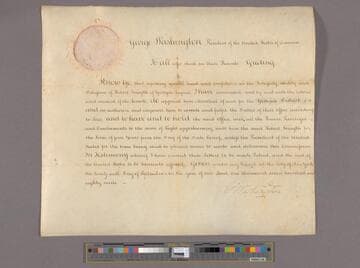 George Washington President of the United States of America
To all who shall see these Presents Greeting
Know Ye, that reposing special trust and confidence in the Integrity, Ability and
Diligence of Robert Forsyth of Georgia Esquire I have nominated, and by and with the advice
and consent of the Senate, do appoint him Marshal of and for the Georgia District, and
do authorize and empower him to execute and fulfil the Duties of that office according
to law, and to have and to hold the said office, with all the Powers, Privileges
and Emoluments to the same of right appertaining, unto him the said Robert Forsyth for
the term of four Years from the Day of the Date hereof, unless the President of the United
States for the time being should be pleased sooner to revoke and determine this Commission.
In Testimony whereof I have caused these Letters to be made Patent, and the seal of
the United States to be hereunto affixed. Given under my Hand at the City of New York
the twenty sixth Day of September in the year of our Lord one thousand seven hundred and
eighty nine
G Washington